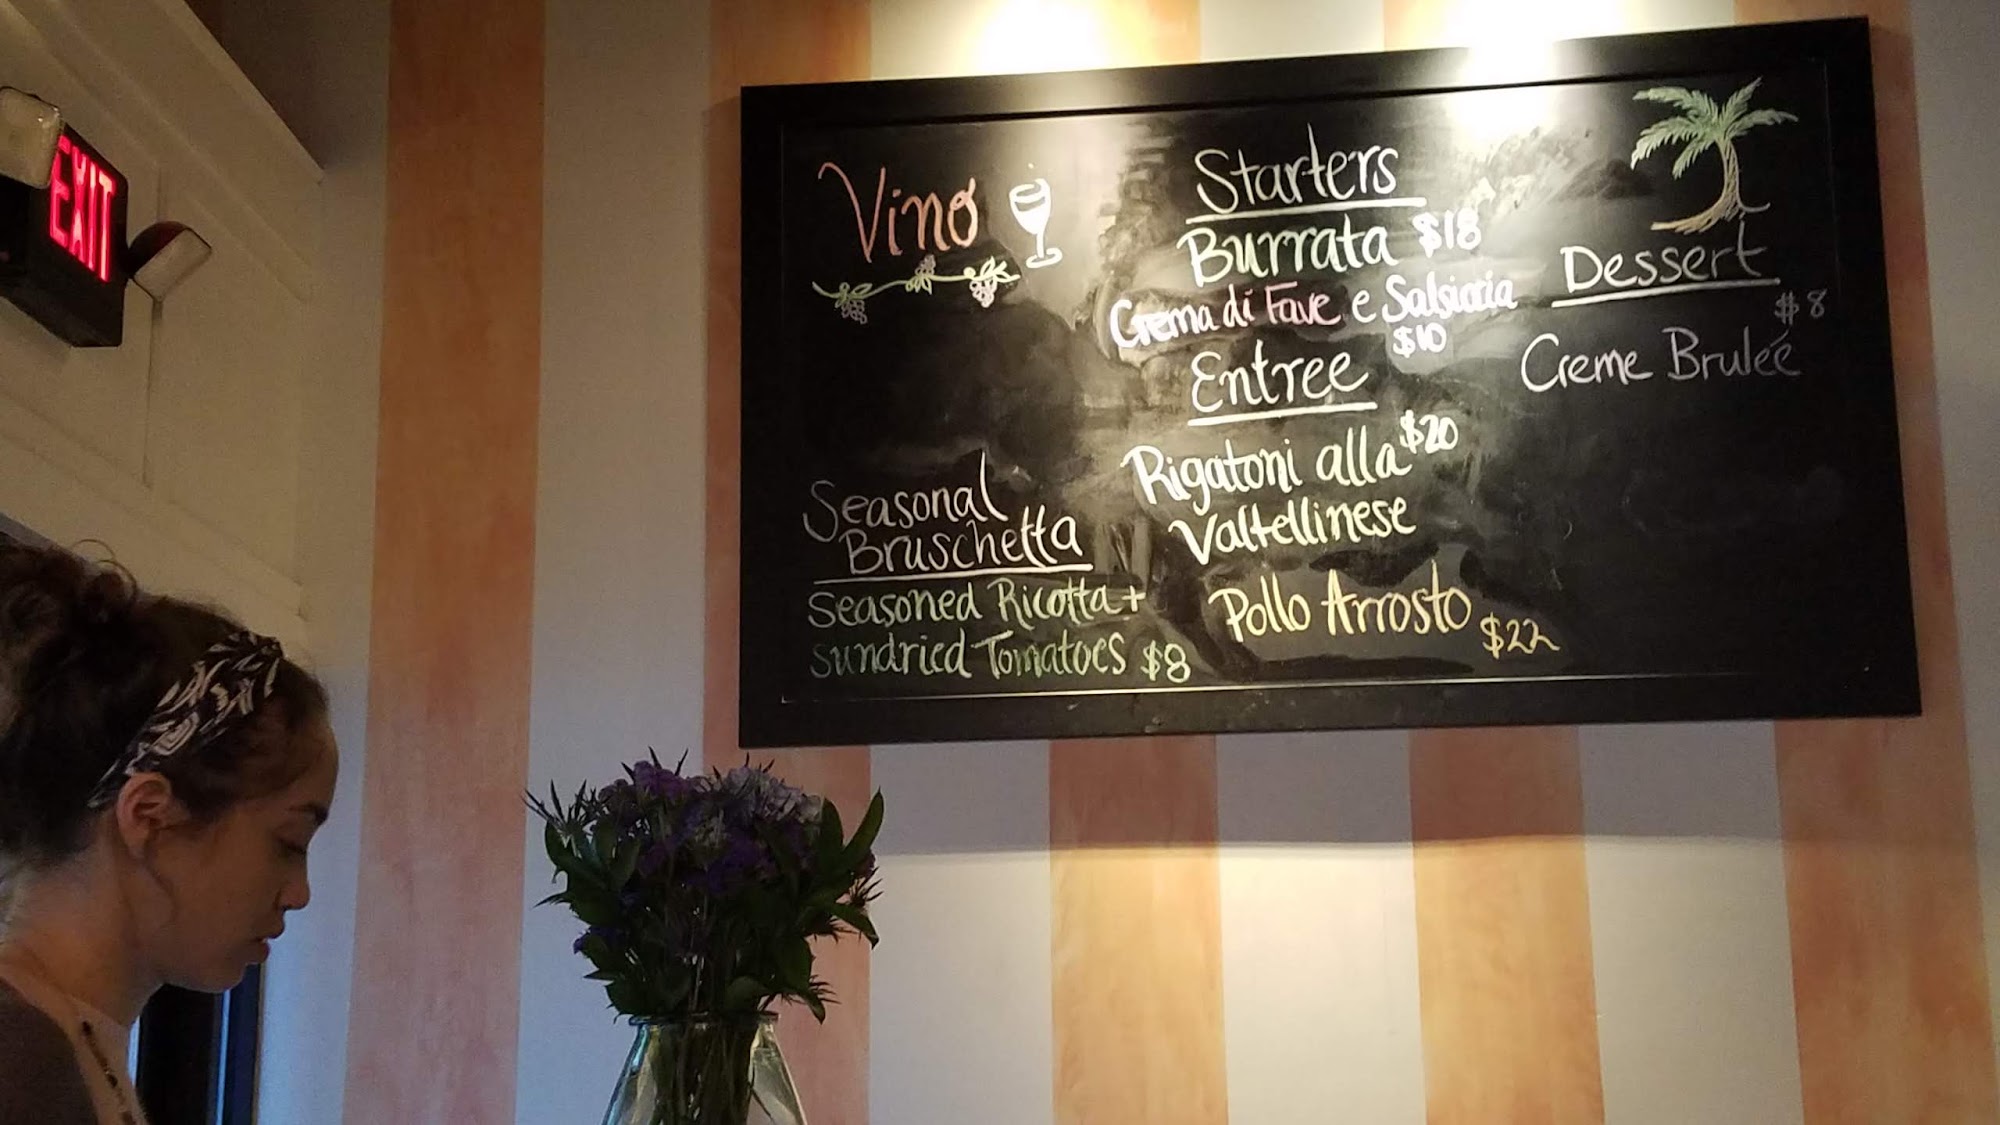 EXIT
Vino
Seasonal
Bruschetta
Seasoned Ricotta +
sundried Tomatoes $8
Starters
Burrata $18
Crema di Fave e Salsiccia
$10
Entree
Rigatoni alla $20
Valtellinese
Pollo Arrosto $22
Dessert
$8
Creme Bruleé